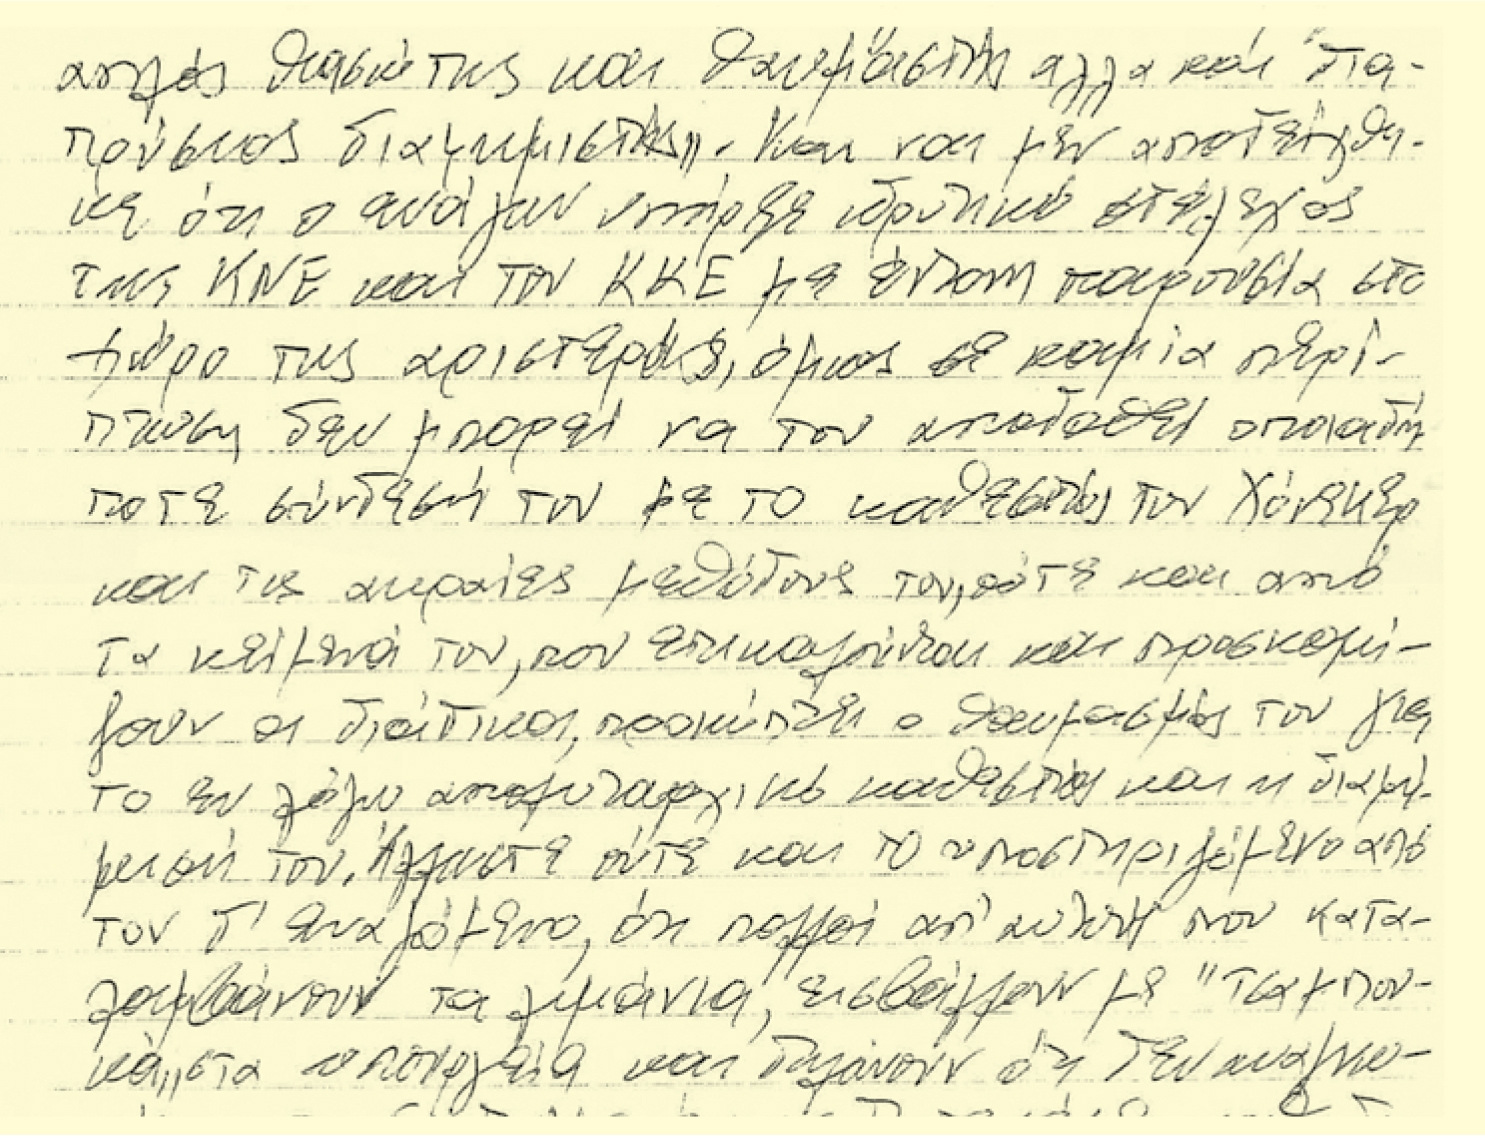 απλός θιασώτης και θαυμαστής αλλα και "δια-
πρύσιος διαφημιστής„. Και ναι μεν αποδείχθη-
κε ότι ο ενάγων υπήρξε ιδρυτικό στέλεχος
της ΚΝΕ και του ΚΚΕ με έντονη παρουσία στο
χώρο της αριστεράς, όμως σε καμία περί-
πτωση δεν μπορεί να του αποδοθεί οποιαδή
ποτε σύνδεσή του με το καθεστώς του Χόνεκερ
και τις ακραίες μεθόδους του, ούτε και από
τα κείμενά του, που επικαλούνται και προσκομί-
ζουν οι διάδικοι, προκύπτει ο θαυμασμός του για
το εν λόγω απολυταρχικό καθεστώς και η διαφή-
μισή του. Άλλωστε ούτε και το υποστηριζόμενο από
τον δ' εναγόμενο, ότι πολλοί απ' αυτούς που κατα-
λαμβάνουν τα λιμάνια, εισβάλλουν με "τσαμπου-
κά„ στα υπουργεία και δηλώνουν ότι δεν αναγνω-